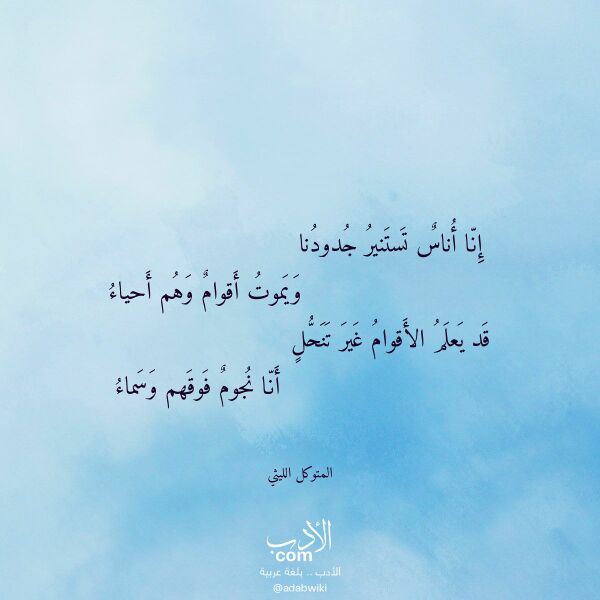 إِنّا أُناسٌ تَستَنيرُ جُدودُنا
وَيَموتُ أَقوامٌ وَهُم أَحياءُ
قَد يَعلَمُ الأَقوامُ غَيرَ تَنَحُّلٍ
أَنّا نُجومٌ فَوقَهم وَسَماءُ
المتوكل الليثي
الأدب
com
الأدب .. بلغة عربية
@adabwiki